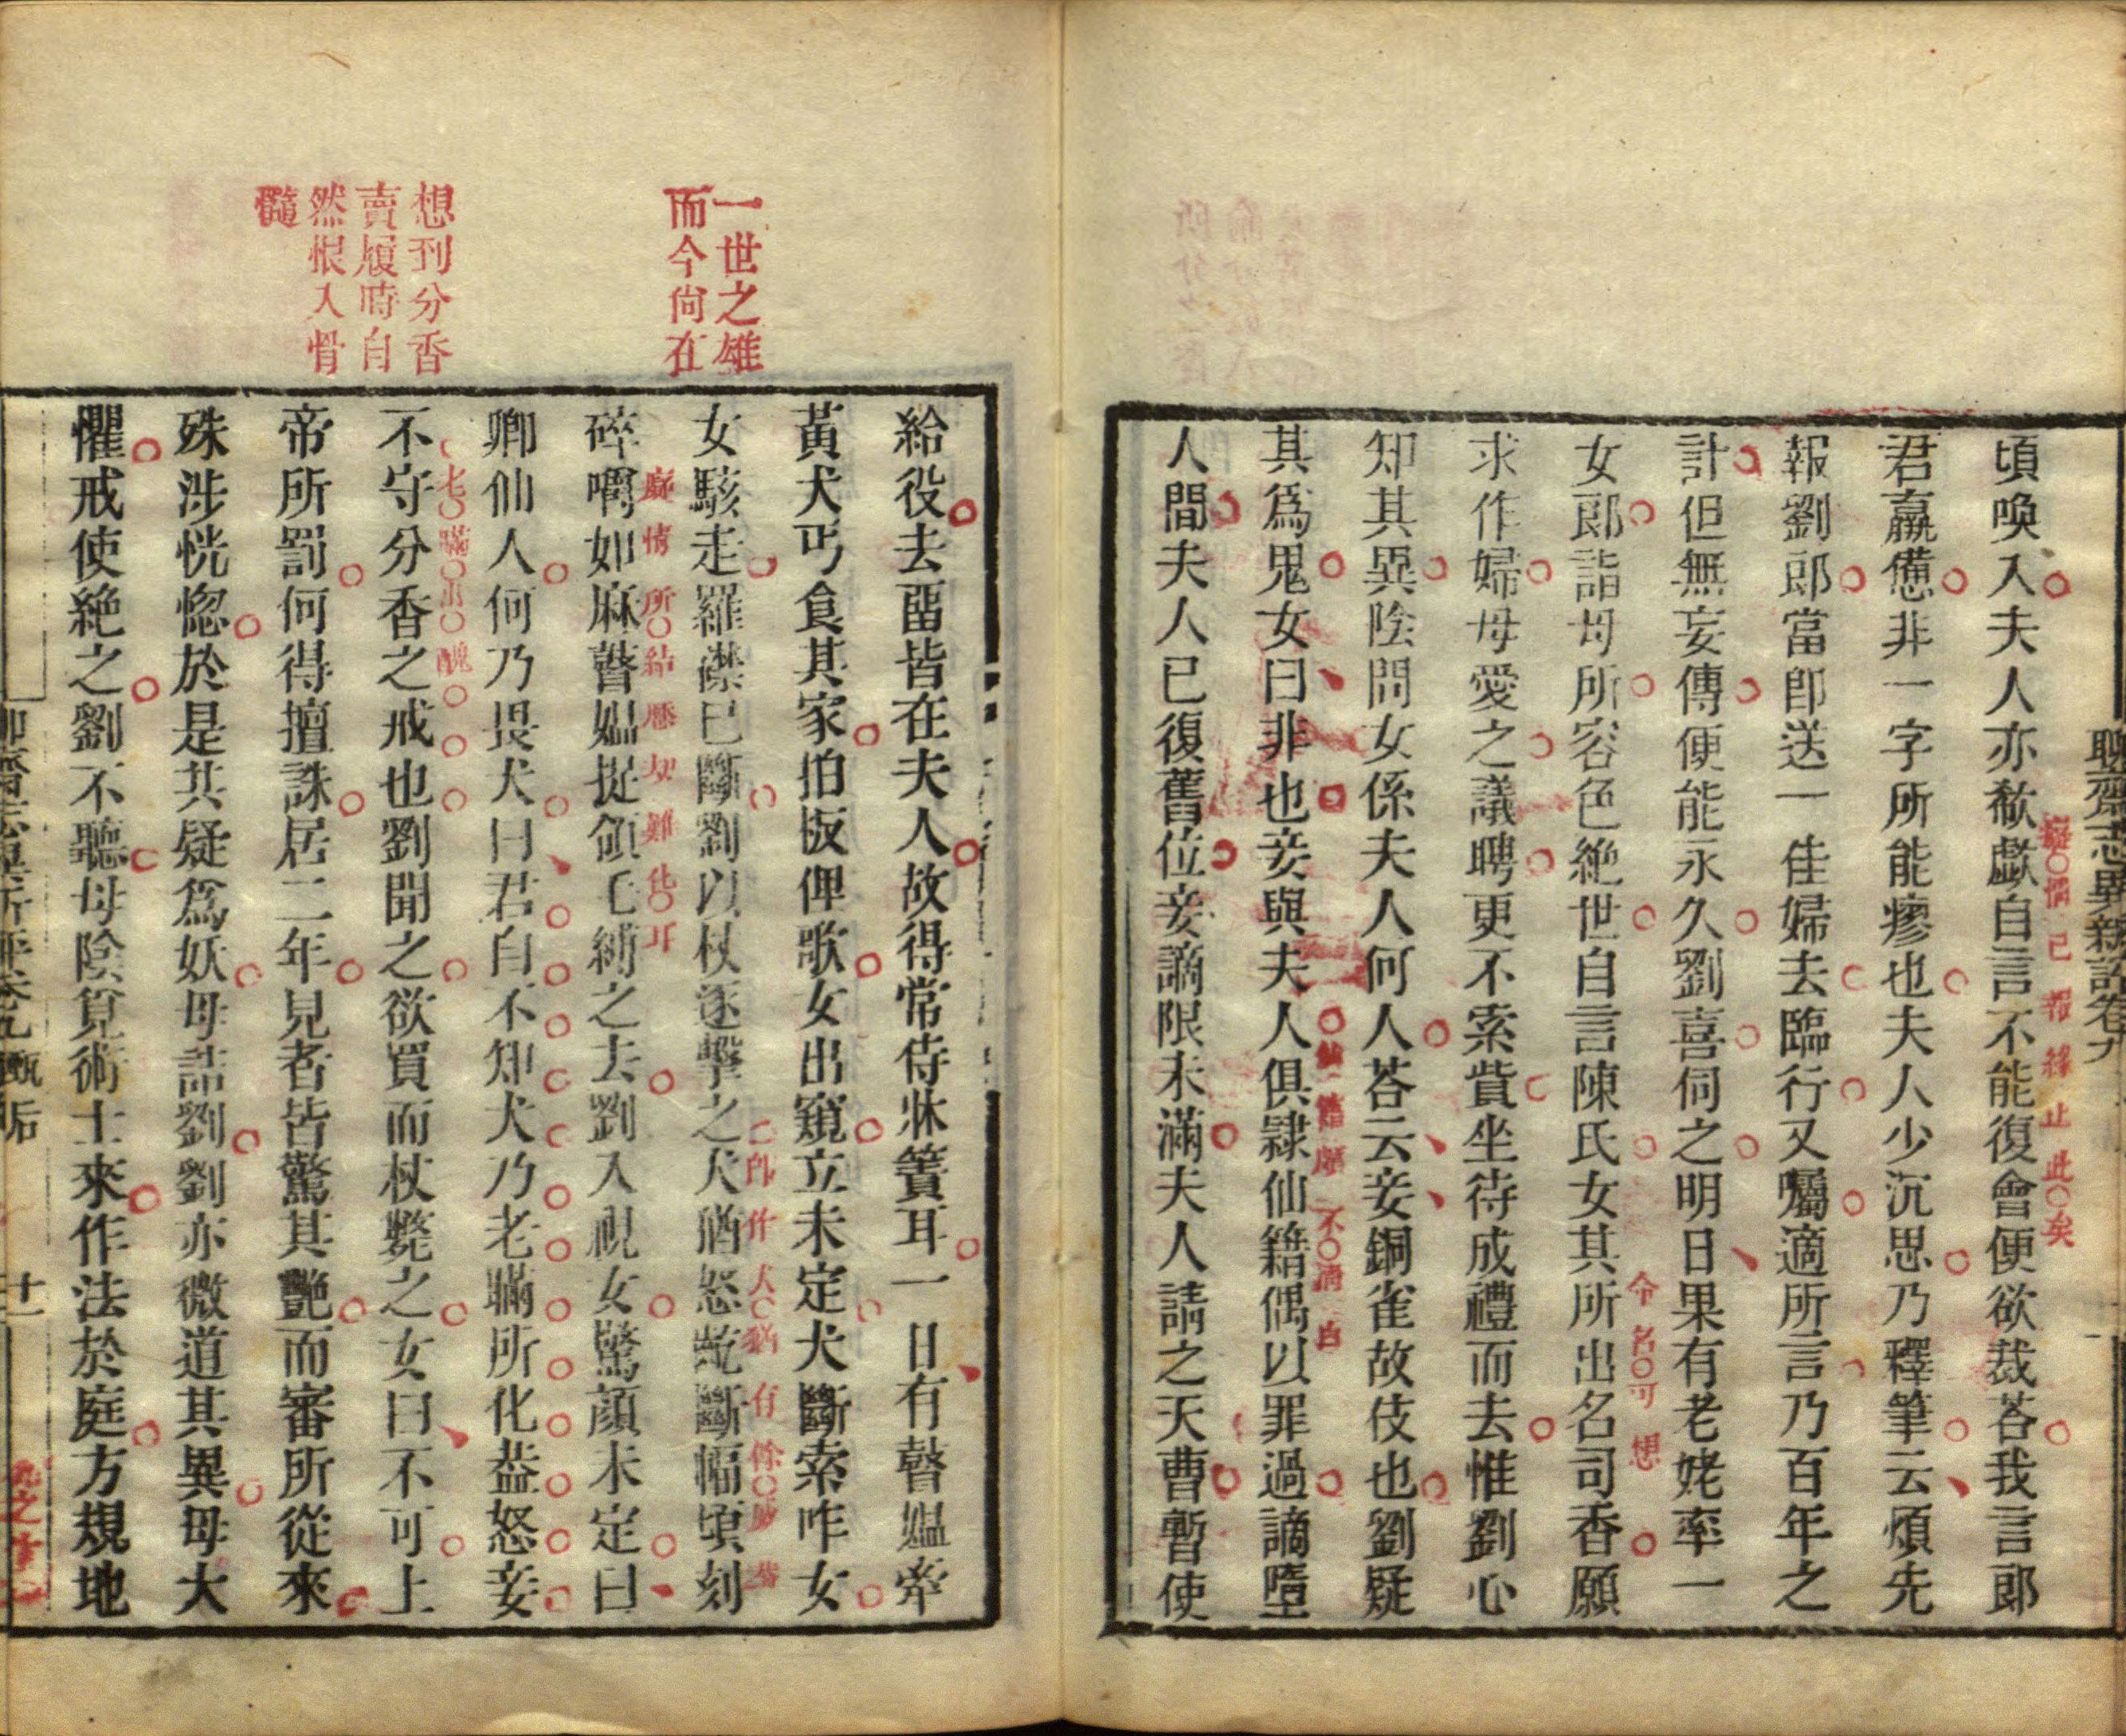 聊齋志異新評卷九
頃喚入夫人亦欷歔自言不能復會便欲裁荅我言郎
癡情已報緣止此矣
君羸憊非一字所能瘳也夫人少沉思乃釋筆云煩先
報劉郎當卽送一佳婦去臨行又囑適所言乃百年之
計但無妄傳便能永久劉喜伺之明日果有老姥率一
女郎詣母所容色絶世自言陳氏女其所出名司香願
令名可想
求作婦母愛之議聘更不索貲坐待成禮而去惟劉心
知其異陰問女係夫人何人荅云妾銅雀故伎也劉疑
其爲鬼女曰非也妾與夫人俱隷仙籍偶以罪過謫墮
不清白
人間夫人已復舊位妾謫限未滿夫人請之天曹暫使
給役去畱皆在夫人故得常侍牀簀耳一日有瞽媪牽
黃犬丐食其家拍板俚歌女出窺立未定犬斷索咋女
一世之雄
而今尙在
女駭走羅襟已斷劉以杖逐擊之犬猶怒齕斷幅頃刻
碎嚼如麻瞽媪捉領毛縛之去劉入視女驚顏未定曰
卿仙人何乃畏犬曰君自不知犬乃老瞞所化葢怒妾
不守分香之戒也劉聞之欲買而杖斃之女曰不可上
老瞞出醜
想到分香
賣履時自
然恨入骨
髓
帝所罰何得擅誅居二年見者皆驚其艷而審所從來
殊涉恍惚於是共疑爲妖母詰劉劉亦微道其異母大
懼戒使絶之劉不聽母陰覓術士來作法於庭方規地
聊齋志異新評卷九 甄后
十一